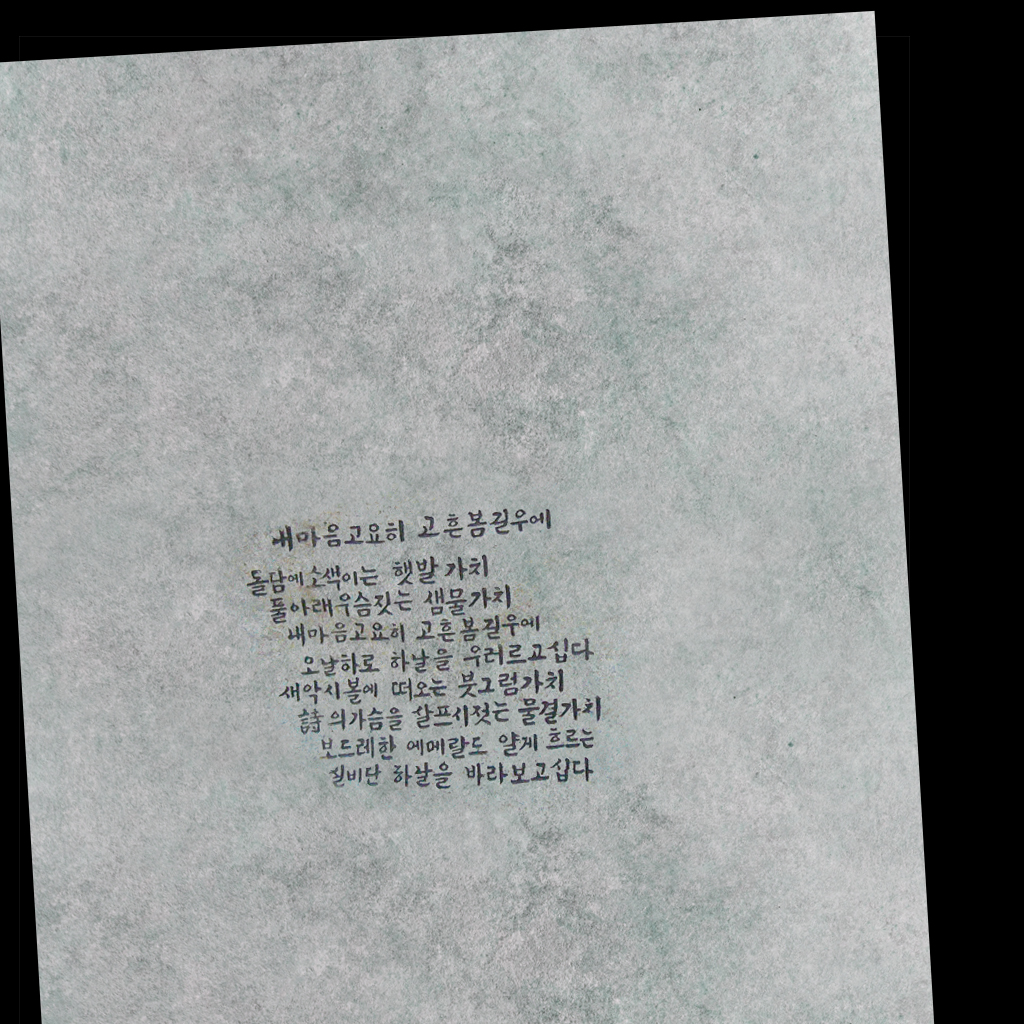 내마음고요히 고흔봄길우에
돌담에소색이는 햇발가치
풀아래우슴짓는 샘물가치
내마음고요히 고흔봄길우에
오날하로 하날을 우러르고십다
새악시볼에 떠오는 붓그럼가치
詩의가슴을 살프시젓는 물결가치
보드레한 에메랄드 얄게 흐르는
실비단 하날을 바라보고십다